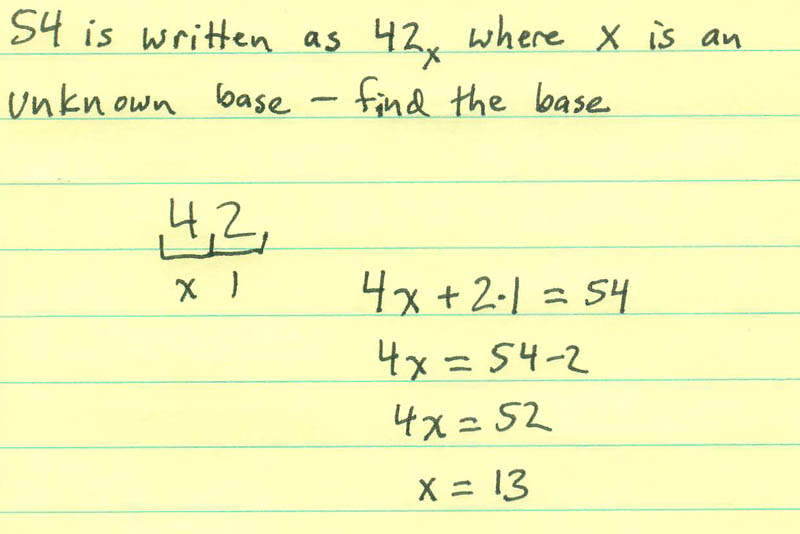 54 is written as 42ₓ where x is an
unknown base – find the base
4 2
x 1
4x + 2·1 = 54
4x = 54-2
4x = 52
x = 13